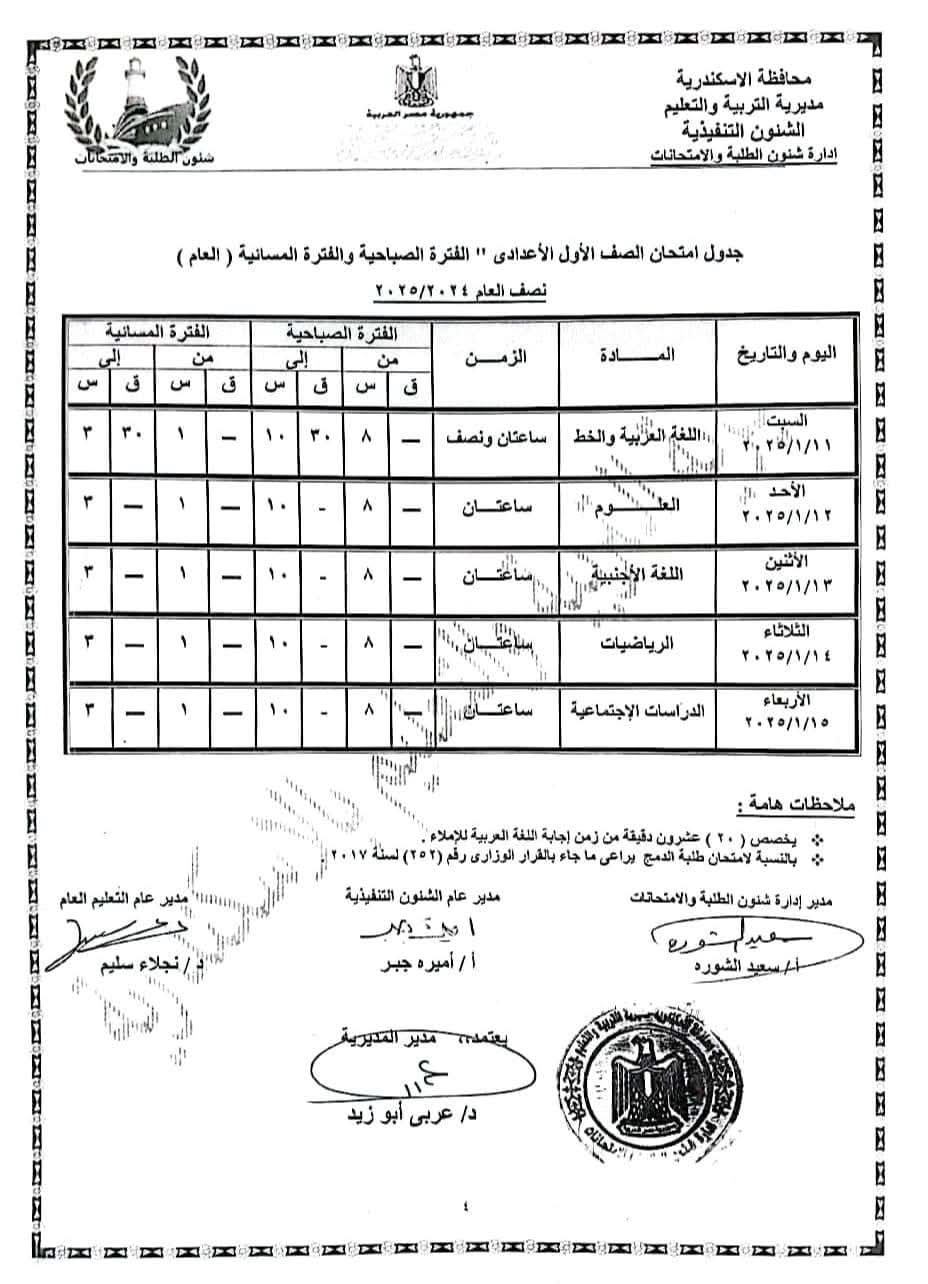 محافظة الاسكندرية
مديرية التربية والتعليم
الشئون التنفيذية
إدارة شئون الطلبة والامتحانات
جمهورية مصر العربية
شئون الطلبة والامتحانات
جدول امتحان الصف الأول الأعدادى " الفترة الصباحية والفترة المسائية ( العام )
نصف العام ٢٠٢٥/٢٠٢٤
اليوم والتاريخ المـــادة الزمـــن الفترة الصباحية الفترة المسائية
من إلى من إلى
ق س ق س ق س ق س
السبت ٢٠٢٥/١/١١ اللغة العربية والخط ساعتان ونصف — ٨ ٣٠ ١٠ — ١ ٣٠ ٣
الأحد ٢٠٢٥/١/١٢ العلـــــوم ساعتـــان — ٨ - ١٠ — ١ — ٣
الأثنين ٢٠٢٥/١/١٣ اللغة الأجنبية ساعتـــان — ٨ - ١٠ — ١ — ٣
الثلاثاء ٢٠٢٥/١/١٤ الرياضيات ساعتـــان — ٨ - ١٠ — ١ — ٣
الأربعاء ٢٠٢٥/١/١٥ الدراسات الإجتماعية ساعتـــان — ٨ - ١٠ — ١ — ٣
ملاحظات هامة :
❖ يخصص ( ٢٠ ) عشرون دقيقة من زمن إجابة اللغة العربية للإملاء .
❖ بالنسبة لامتحان طلبة الدمج يراعى ما جاء بالقرار الوزارى رقم (٢٥٢) لسنة ٢٠١٧ .
مدير إدارة شئون الطلبة والامتحانات مدير عام الشئون التنفيذية مدير عام التعليم العام
أ/ سعيد الشوره أ/ أميره جبر د/ نجلاء سليم
يعتمد،، مدير المديرية
د/ عربى أبو زيد
٤